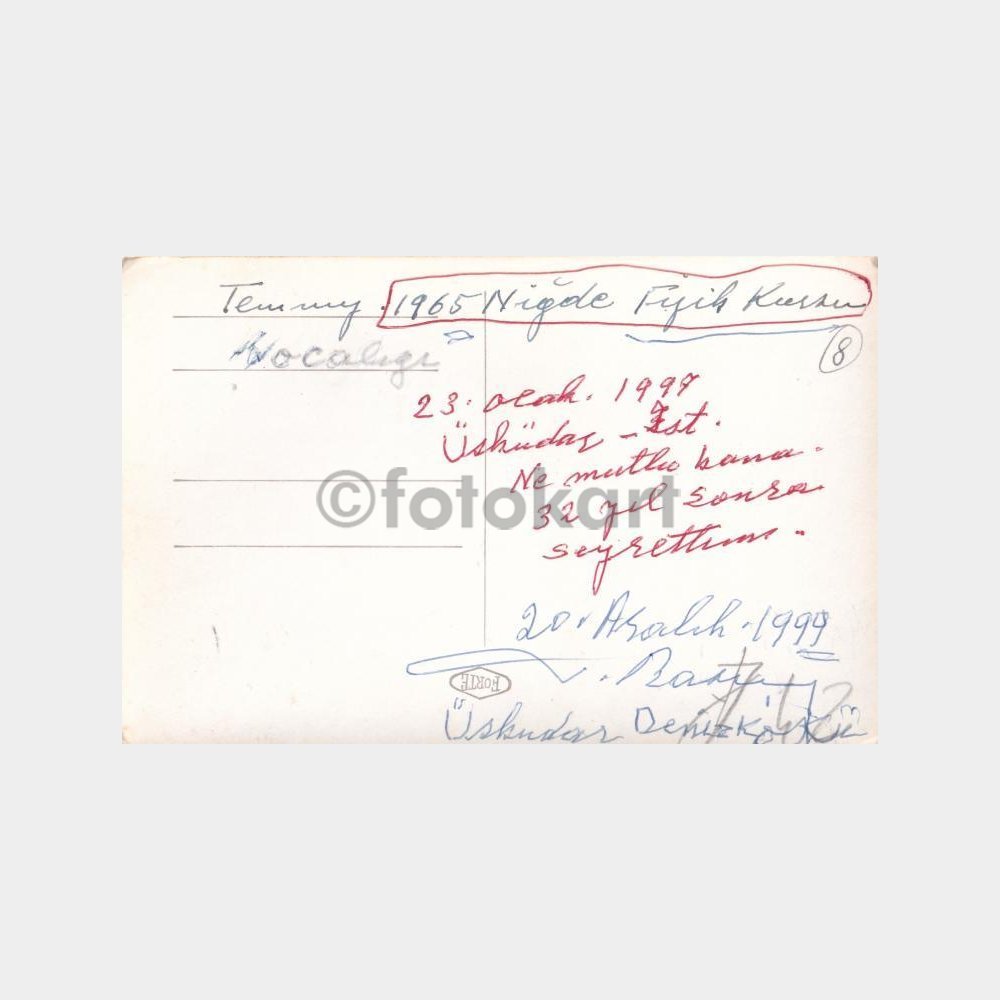 Temmuz . 1965 Niğde Fizik Kursu
Kocabıyı
8
23. ocak. 1997
Üsküdar - İst.
Ne mutlu bana.
32 yıl sonra
seyrettim.
©fotokart
20. Aralık. 1999
FORTE
Üsküdar Denizköşkü